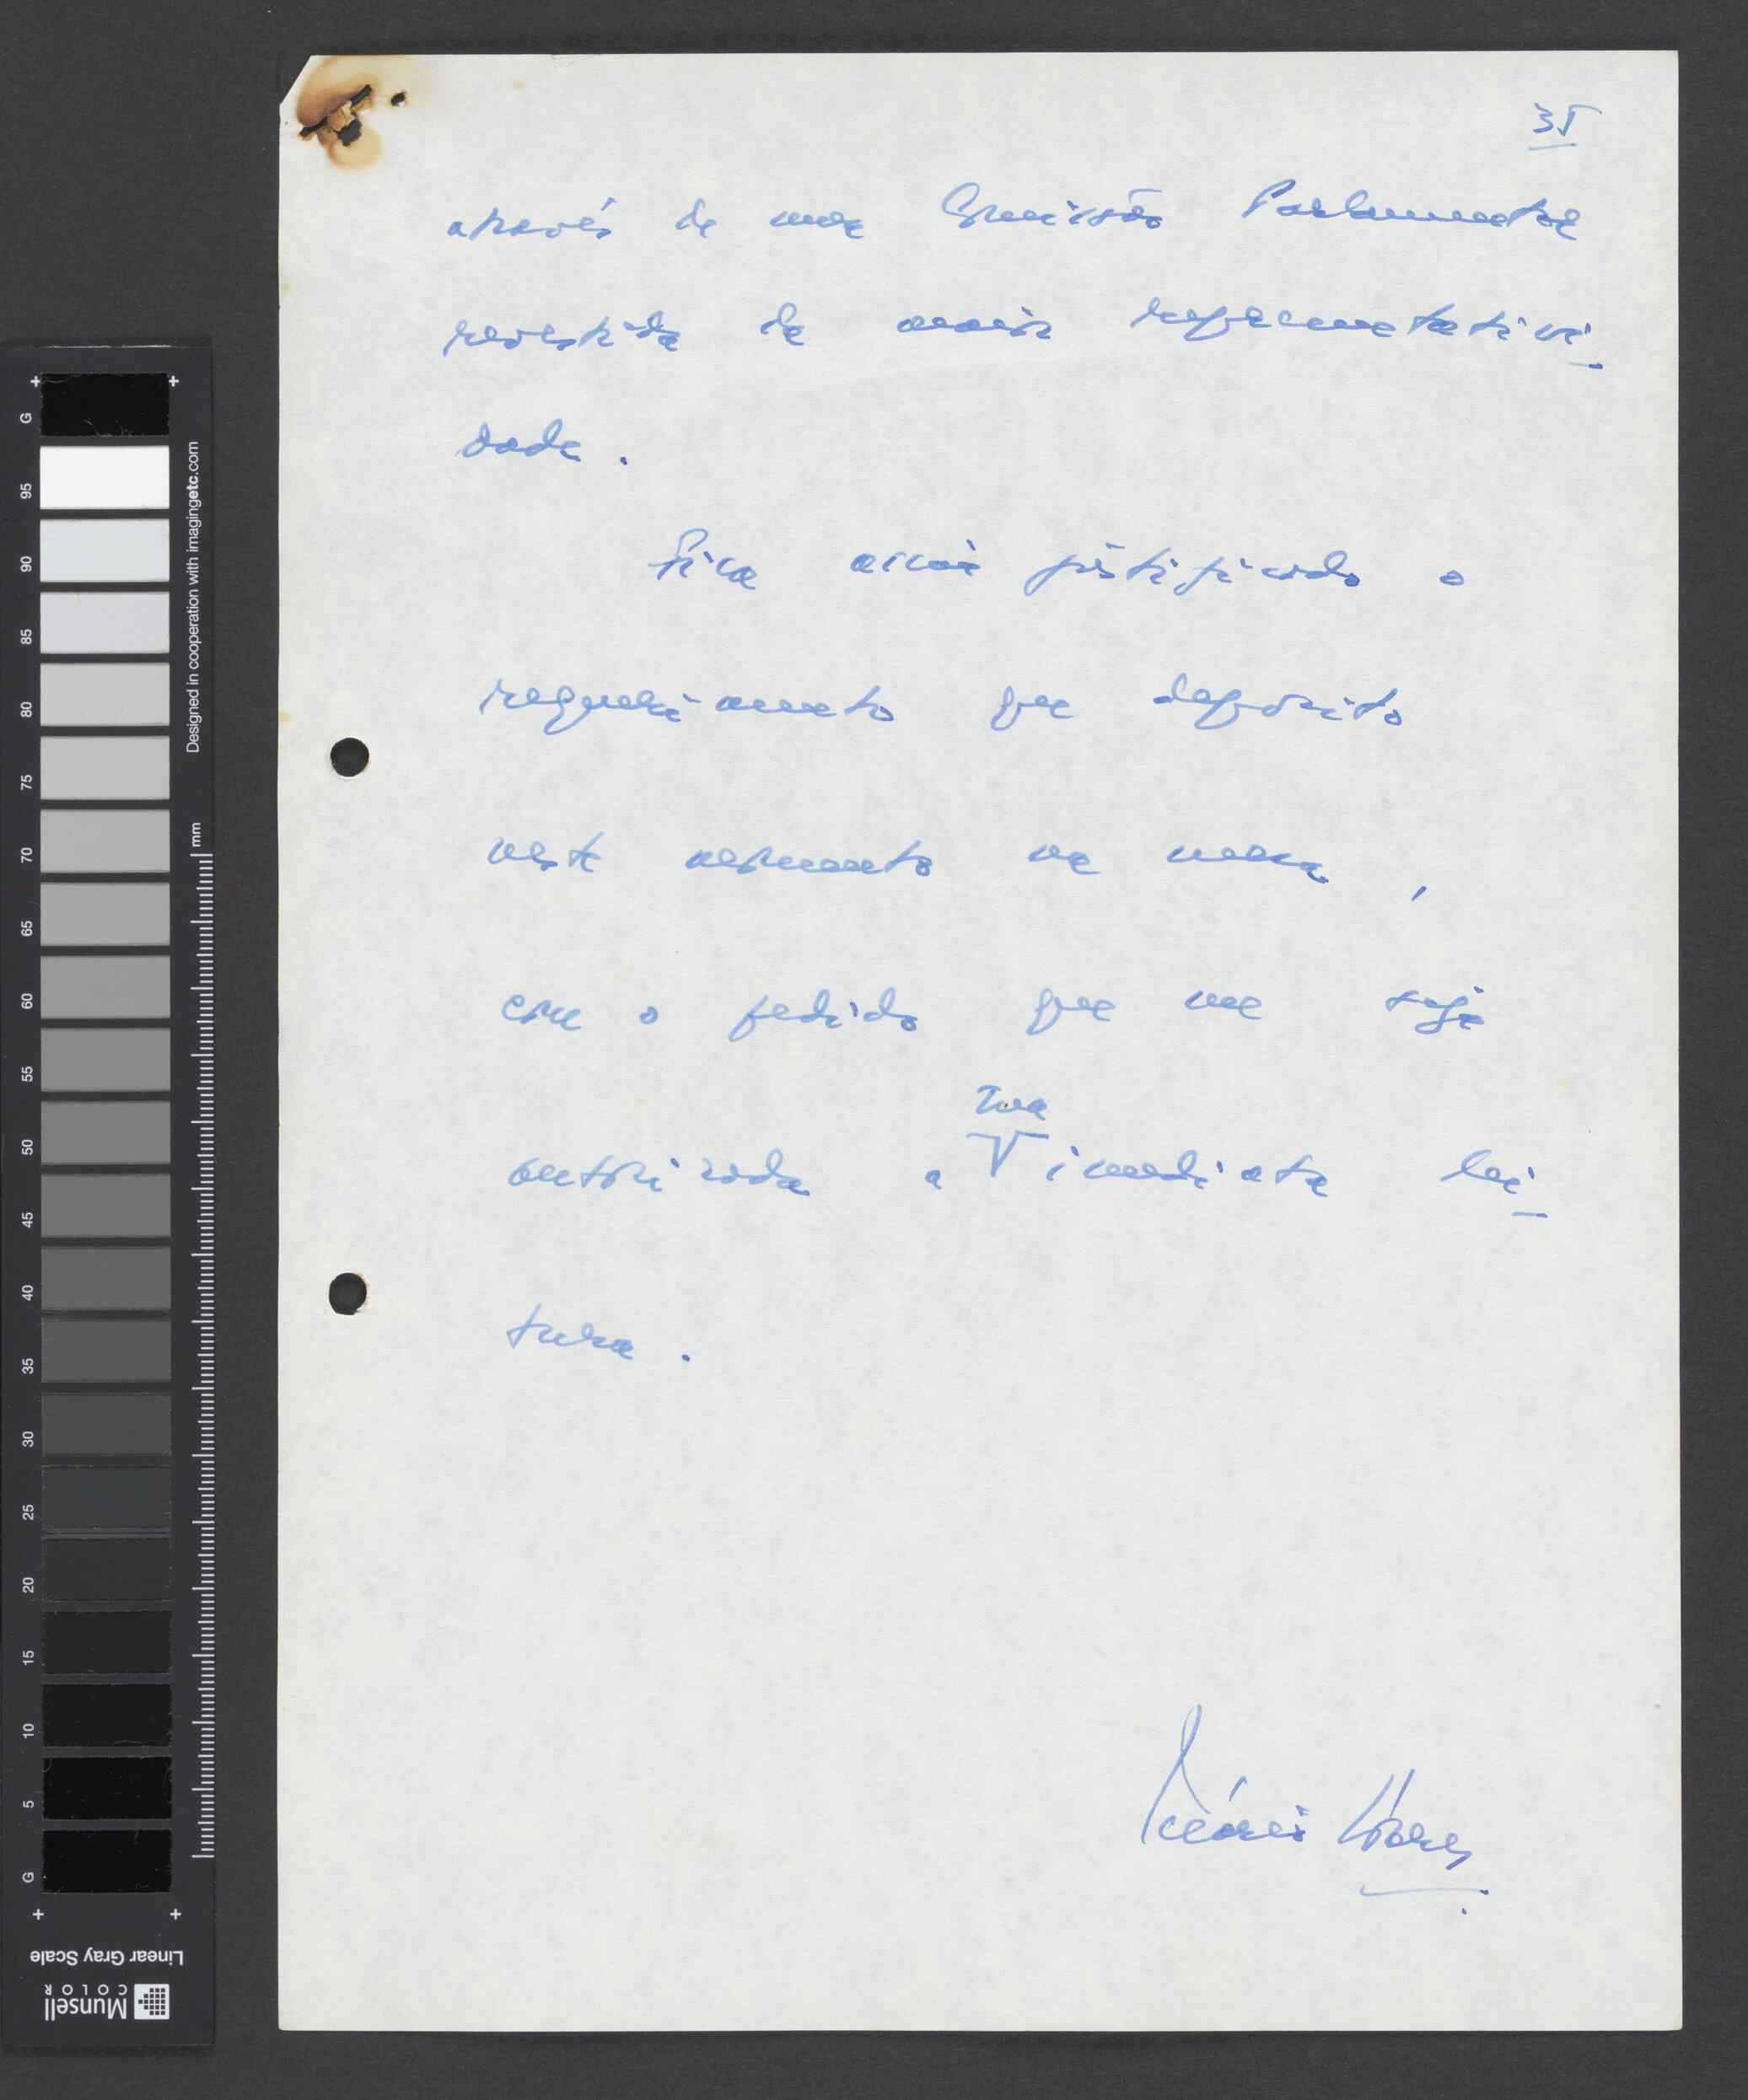 35
através de uma Comissão Parlamentar
revestida da maior representativi-
dade.
Fica assim justificado o
requerimento que deposito
neste momento na mesa,
com o pedido que me seja
sua
autorizada a V imediata lei-
tura.
Mário Soares
G 95 90 85 80 75 70 65 60 55 50 45 40 35 30 25 20 15 10 5 G
Designed in cooperation with imagingetc.com
mm
Linear Gray Scale
Munsell
COLOR